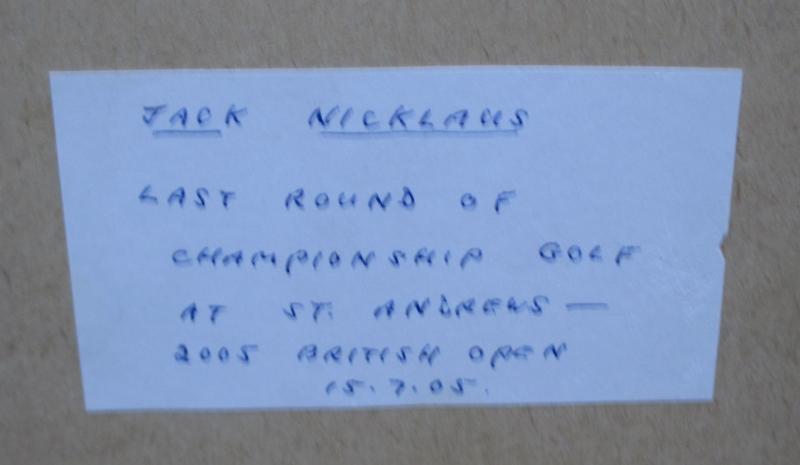 JACK NICKLAUS
LAST ROUND OF
CHAMPIONSHIP GOLF
AT ST. ANDREWS —
2005 BRITISH OPEN
15.7.05.